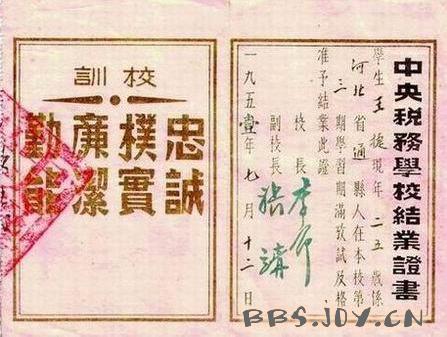 中央税務學校結業證書
學生王捷現年二五歲係
河北省通縣人在本校第
三期學習期滿攷試及格
准予結業此證
校長 李
副校長 張
一九五壹年七月十二日
校訓
忠誠
樸實
廉潔
勤能
BBS.JOY.CN